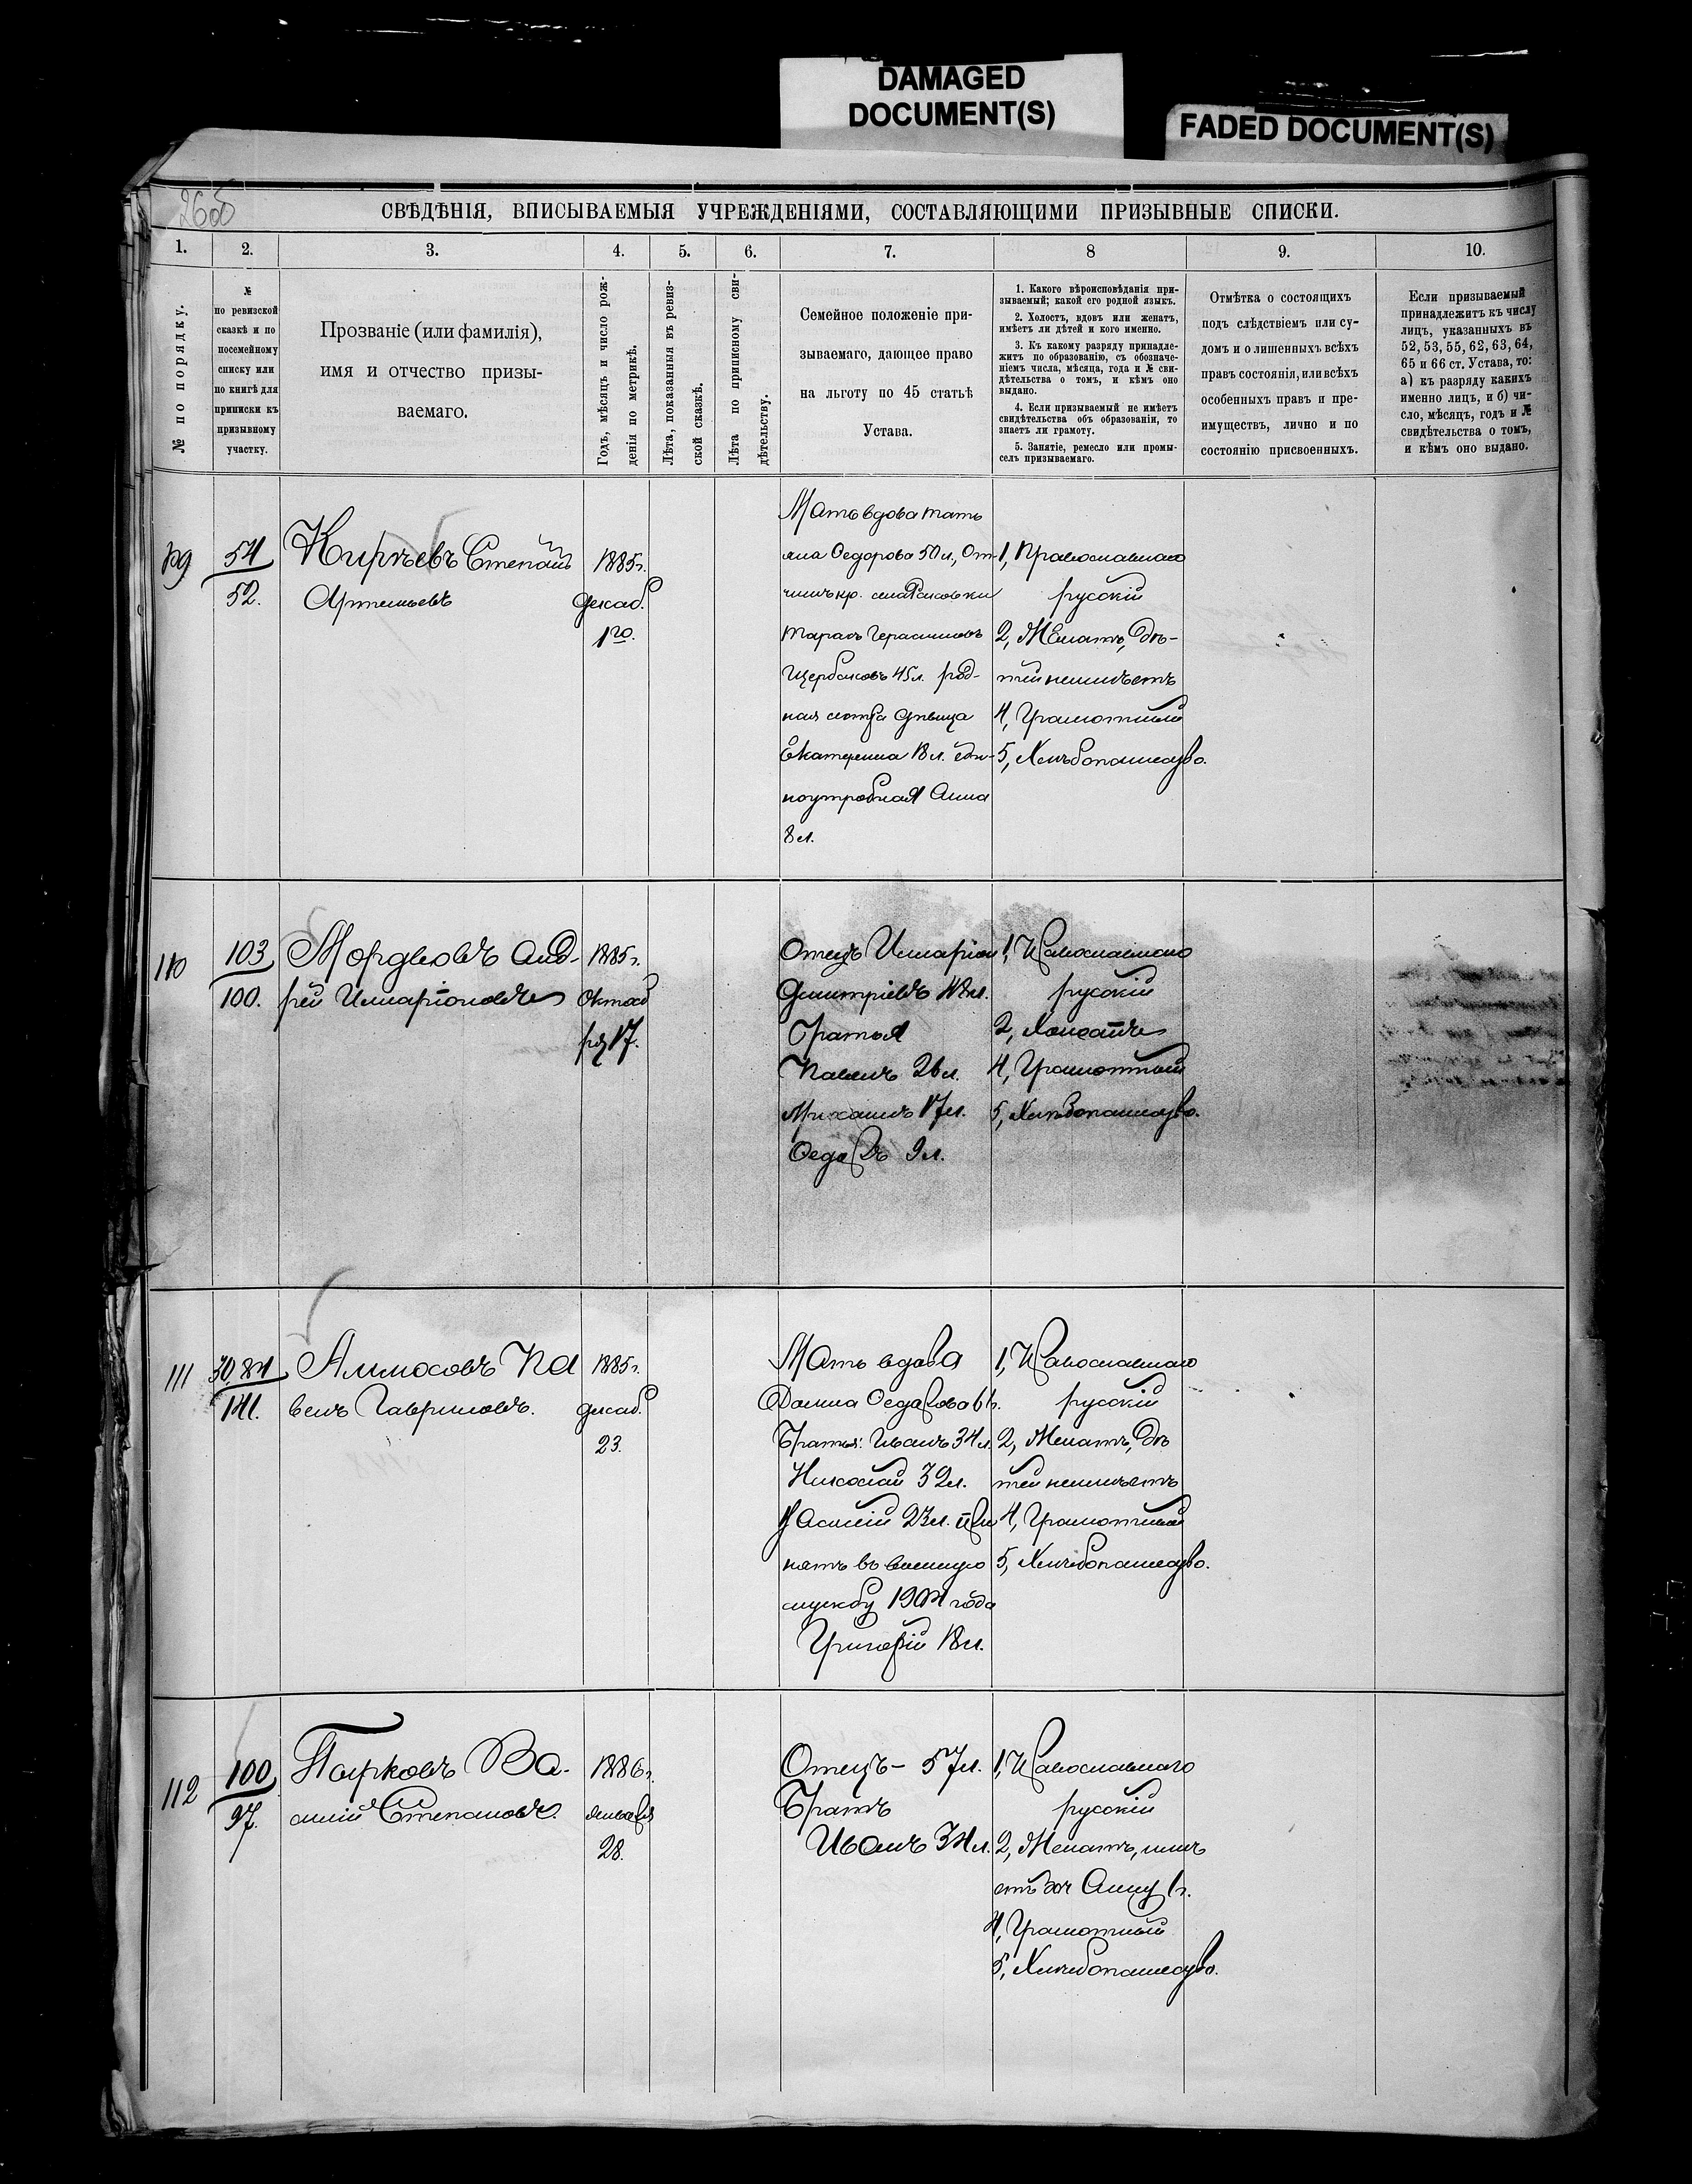 DAMAGED
DOCUMENT(S)
FADED DOCUMENT(S)
26об
СВѢДѢНІЯ, ВПИСЫВАЕМЫЯ УЧРЕЖДЕНІЯМИ, СОСТАВЛЯЮЩИМИ ПРИЗЫВНЫЕ СПИСКИ.
1.
2.
3.
4.
5.
6.
7.
8
9.
10.
№ по порядку.
№
по ревизской
сказкѣ и по
посемейному
списку или
по книгѣ для
приписки къ
призывному
участку.
Прозваніе (или фамилія),
имя и отчество призы-
ваемаго.
Годъ, мѣсяцъ и число рож-
денія по метрикѣ.
Лѣта, показанныя въ ревиз-
ской сказкѣ.
Лѣта по приписному сви-
дѣтельству.
Семейное положеніе при-
зываемаго, дающее право
на льготу по 45 статьѣ
Устава.
1. Какого вѣроисповѣданія при-
зываемый; какой его родной языкъ.
2. Холостъ, вдовъ или женатъ,
имѣетъ ли дѣтей и кого именно.
3. Къ какому разряду принадле-
житъ по образованію, съ обозначе-
ніемъ числа, мѣсяца, года и № сви-
дѣтельства о томъ, и кѣмъ оно
выдано.
4. Если призываемый не имѣетъ
свидѣтельства объ образованіи, то
знаетъ ли грамоту.
5. Занятіе, ремесло или промы-
селъ призываемаго.
Отмѣтка о состоящихъ
подъ слѣдствіемъ или су-
домъ и о лишенныхъ всѣхъ
правъ состоянія, или всѣхъ
особенныхъ правъ и пре-
имуществъ, лично и по
состоянію присвоенныхъ.
Если призываемый
принадлежитъ къ числу
лицъ, указанныхъ въ
52, 53, 55, 62, 63, 64,
65 и 66 ст. Устава, то:
а) къ разряду какихъ
именно лицъ, и б) чи-
сло, мѣсяцъ, годъ и №
свидѣтельства о томъ,
и кѣмъ оно выдано.
109
54
52.
Кирѣевъ Степанъ
Артемьевъ
1885г.
декаб.
1го.
Мать вдова Тать
яна Ѳедорова 50 л., От-
чимъ кр. села
Тарасъ Герасимовъ
Щербаковъ 45 л. род-
ная сестра дѣвица
Екатерина 18 л. едино-
ноутробная Анна
8 л.
1, Православнаго
русскій
2, Женатъ, дѣ-
тей неимѣетъ
4, Грамотный
5, Хлѣбопашество.
110
103
100.
Мордвовъ Анд-
рей Илларіоновъ
1885г.
Октяб
ря 17.
Отецъ Илларіон
Дмитріевъ 48 л.
Братья
Павелъ 26 л.
Михаилъ 17 л.
Ѳедоръ 9 л.
1, Православнаго
русскій
2, Холостъ
4, Грамотный
5, Хлѣбопашество.
111
141.
Алмосовъ Па
велъ Гавриловъ.
1885г.
декаб.
23.
Мать вдова
Ѳедорова
Братья: Иванъ 34 л.
Николай 32 л.
Василій 23 л. при
нятъ въ военную
службу 1904 года
Григорій 18 л.
1, Православнаго
русскій
2, Женатъ, дѣ
тей неимѣетъ
4, Грамотный
5, Хлѣбопашество.
112
100
97.
Парковъ Ва-
силій Степановъ.
1886г.
января
28.
Отецъ – 57 л.
Братъ
Иванъ 34 л.
1, Православнаго
русскій
2, Женатъ, имѣ
етъ дочь Анну 1 г.
4, Грамотный
5, Хлѣбопашество.